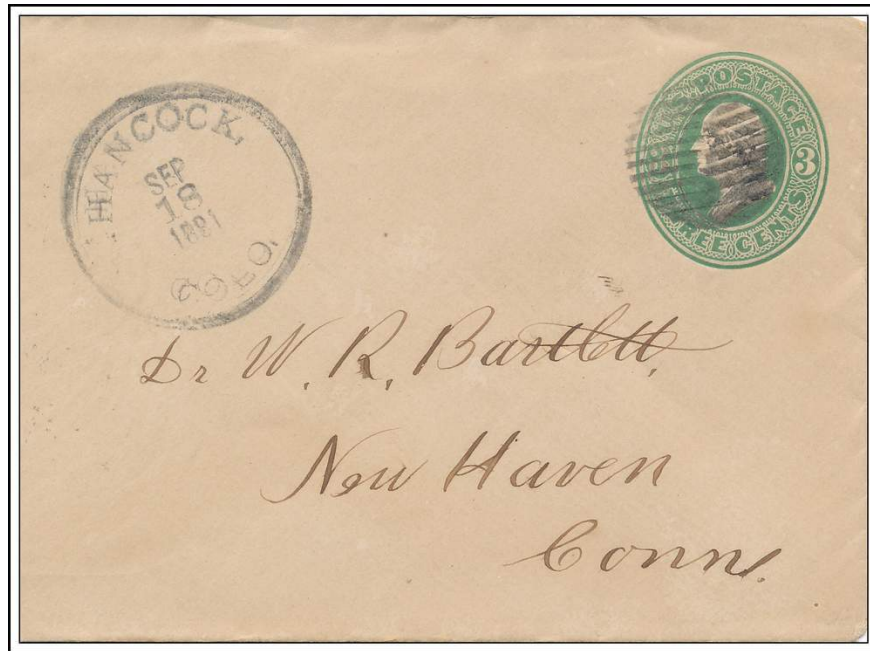 HANCOCK,
SEP
18
1881
COLO.
U.S. POSTAGE
3
CENTS
Dr W. R. Bartlett,
New Haven
Conn.